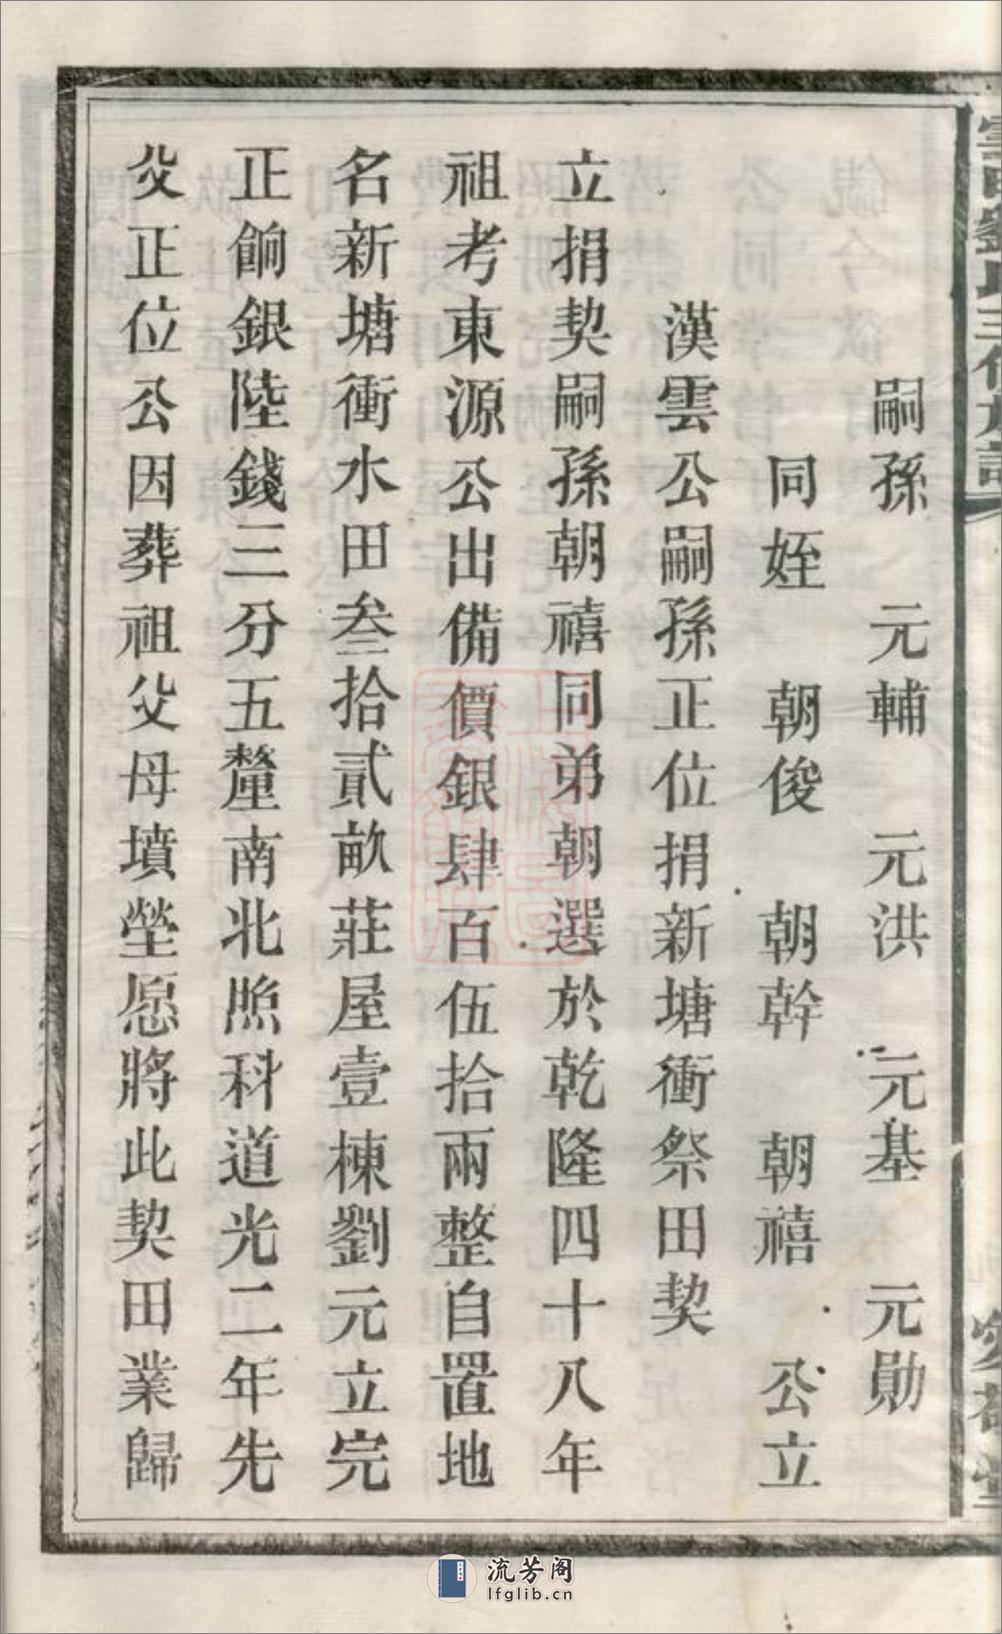 嗣孫　元輔　元洪　元基　元勛
同姪　朝俊　朝幹　朝禧　公立
漢雲公嗣孫正位捐新塘衝祭田契
立捐契嗣孫朝禧同弟朝選於乾隆四十八年
祖考東源公出備價銀肆百伍拾兩整自置地
名新塘衝水田叁拾貳畝莊屋壹棟劉元立完
正餉銀陸錢三分五釐南北照科道光二年先
父正位公因葬祖父母墳塋愿將此契田業歸
流芳阁
lfglib.cn